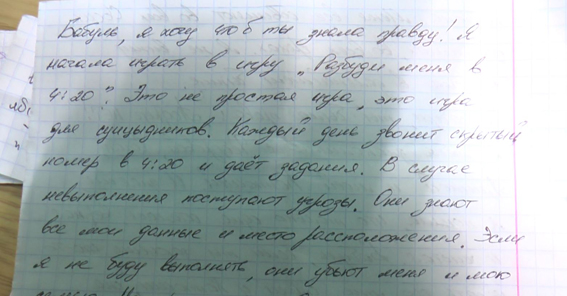 Бабуль, я хочу что б ты знала правду! Я
начала играть в игру „Разбуди меня в
4:20". Это не простая игра, это игра
для суицыдников. Каждый день звонит скрытый
номер в 4:20 и даёт задания. В случае
невыполнения поступают угрозы. Они знают
все мои данные и место рассположения. Если
я не буду выполнять, они убьют меня и мою